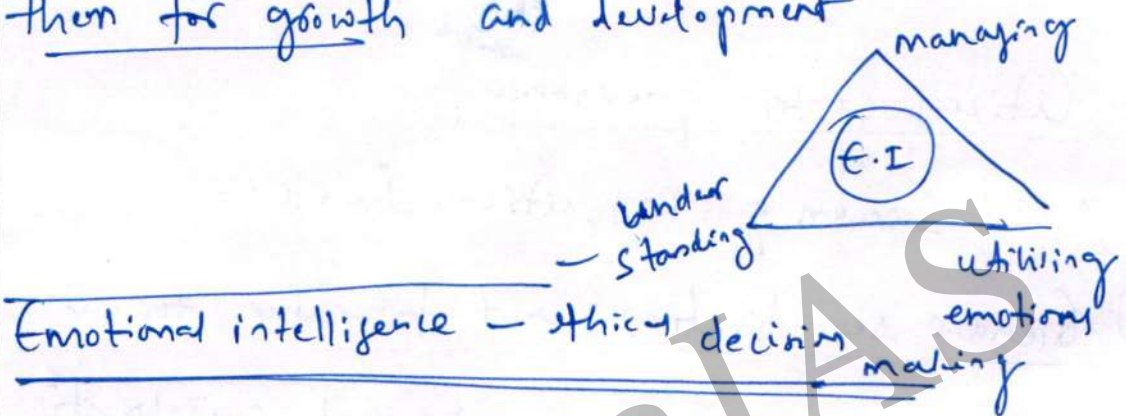 them for growth and development
managing
E.I
under
- standing
utilising
emotions
Emotional intelligence - ethical decision
making
IAS